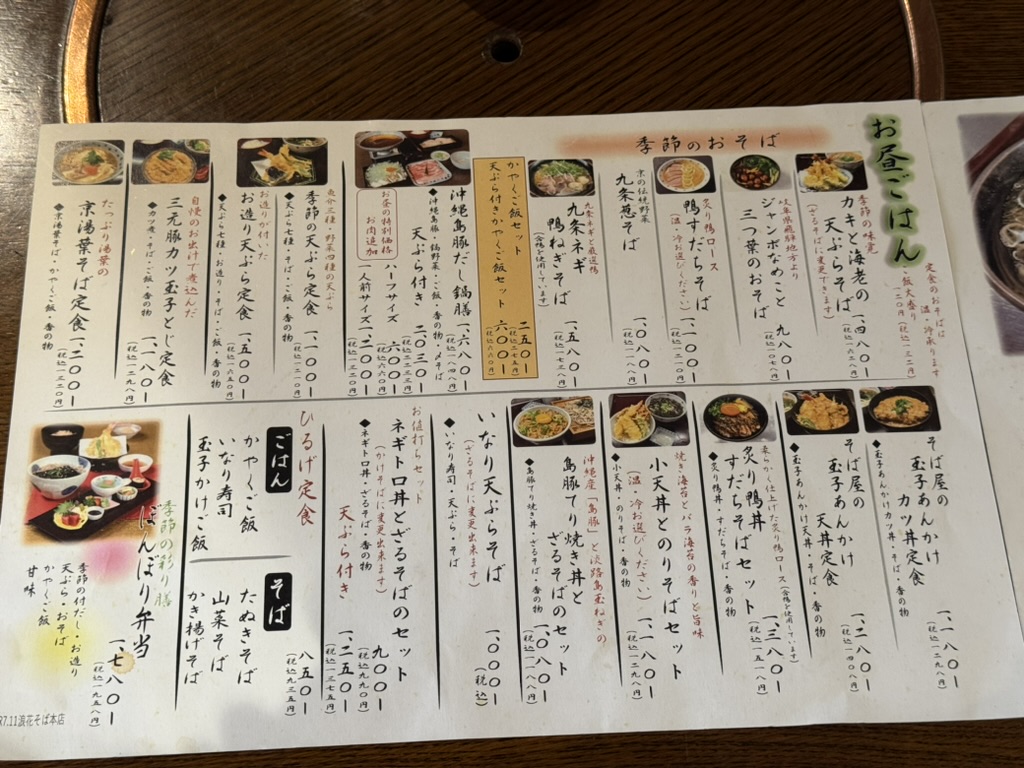 お昼ごはん
定食のおそばは
温・冷承ります
ご飯大盛り
一二〇円(税込一三二円)
季節のおそば
季節の味覚
カキと海老の
天ぷらそば
(ざるそばに変更できます)
一、四八〇ー
(税込一六二八円)
岐阜県飛騨地方より
ジャンボなめこと
三つ葉のおそば
九八〇ー
(税込一〇七八円)
炙り鴨ロース
鴨すだちそば
(温・冷お選びください)
一、一〇〇ー
(税込一二一〇円)
京の伝統野菜
九条葱そば
一、〇八〇ー
九条葱と厳選鴨
九条ネギ
鴨ねぎそば
(合鴨を使用しています)
一、五八〇ー
(税込一七三八円)
かやくご飯セット
二五〇ー
(税込二七五円)
天ぷら付きかやくご飯セット
六〇〇ー
(税込六六〇円)
沖縄島豚だし鍋膳
◆沖縄島豚・鍋野菜・ご飯・香の物・〆そば
一、六八〇ー
(税込一八四八円)
天ぷら付き
二、〇三〇ー
お昼の特別価格
お肉追加
ハーフサイズ
六〇〇ー
(税込六六〇円)
一人前サイズ
一、二〇〇ー
(税込一三二〇円)
魚介三種・野菜四種の天ぷら
季節の天ぷら定食
◆天ぷら七種・そば・ご飯・香の物
一、一〇〇ー
(税込一二一〇円)
お造りが付いた
お造り天ぷら定食
◆天ぷら七種・お造り・そば・ご飯・香の物
一、五〇〇ー
(税込一六五〇円)
自慢のお出汁で煮込んだ
三元豚カツ玉子とじ定食
◆カツ煮・そば・ご飯・香の物
一、一八〇ー
(税込一二九八円)
たっぷり湯葉の
京湯葉そば定食
◆京湯葉そば・かやくご飯・香の物
一、二〇〇ー
(税込一三二〇円)
そば屋の
玉子あんかけ
カツ丼定食
◆玉子あんかけカツ丼・そば・香の物
一、一八〇ー
(税込一二九八円)
そば屋の
玉子あんかけ
天丼定食
◆玉子あんかけ天丼・そば・香の物
一、二八〇ー
(税込一四〇八円)
柔らかく仕上げた炙り鴨ロース(合鴨を使用しています)
炙り鴨丼
すだちそばセット
◆炙り鴨丼・すだちそば・香の物
一、三八〇ー
(税込一五一八円)
焼き海苔とバラ海苔の香りと旨味
小天丼とのりそばセット
(温・冷お選びください)
◆小天丼・のりそば・香の物
一、一八〇ー
(税込一二九八円)
沖縄産「島豚」と淡路島玉ねぎの
島豚てり焼き丼と
ざるそばのセット
◆島豚てり焼き丼・ざるそば・香の物
一、〇八〇ー
(税込一一八八円)
いなり天ぷらそば
(ざるそばに変更出来ます)
◆いなり寿司・天ぷら・そば
一、〇〇〇ー
(税込)
お値打ちセット
ネギトロ丼とざるそばのセット
(かけそばに変更出来ます)
◆ネギトロ丼・ざるそば・香の物
九〇〇ー
(税込九九〇円)
天ぷら付き
一、二五〇ー
(税込一三七五円)
ひるげ定食
八五〇ー
(税込九三五円)
ごはん
かやくご飯
いなり寿司
玉子かけご飯
そば
たぬきそば
山菜そば
かき揚げそば
季節の彩り膳
ぼんぼり弁当
季節の付だし・お造り
天ぷら・おそば
かやくご飯
甘味
一、七八〇ー
(税込一九五八円)
R7.11浪花そば本店